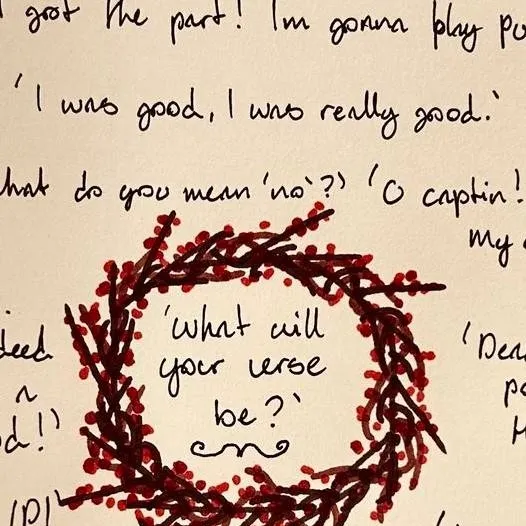 got the part! Im gonna play Pu
'I was good, I was really good.'
hat do you mean 'no'?' 'O captin!
my
'what will
your verse
be?'
deed
d!)
'Dea